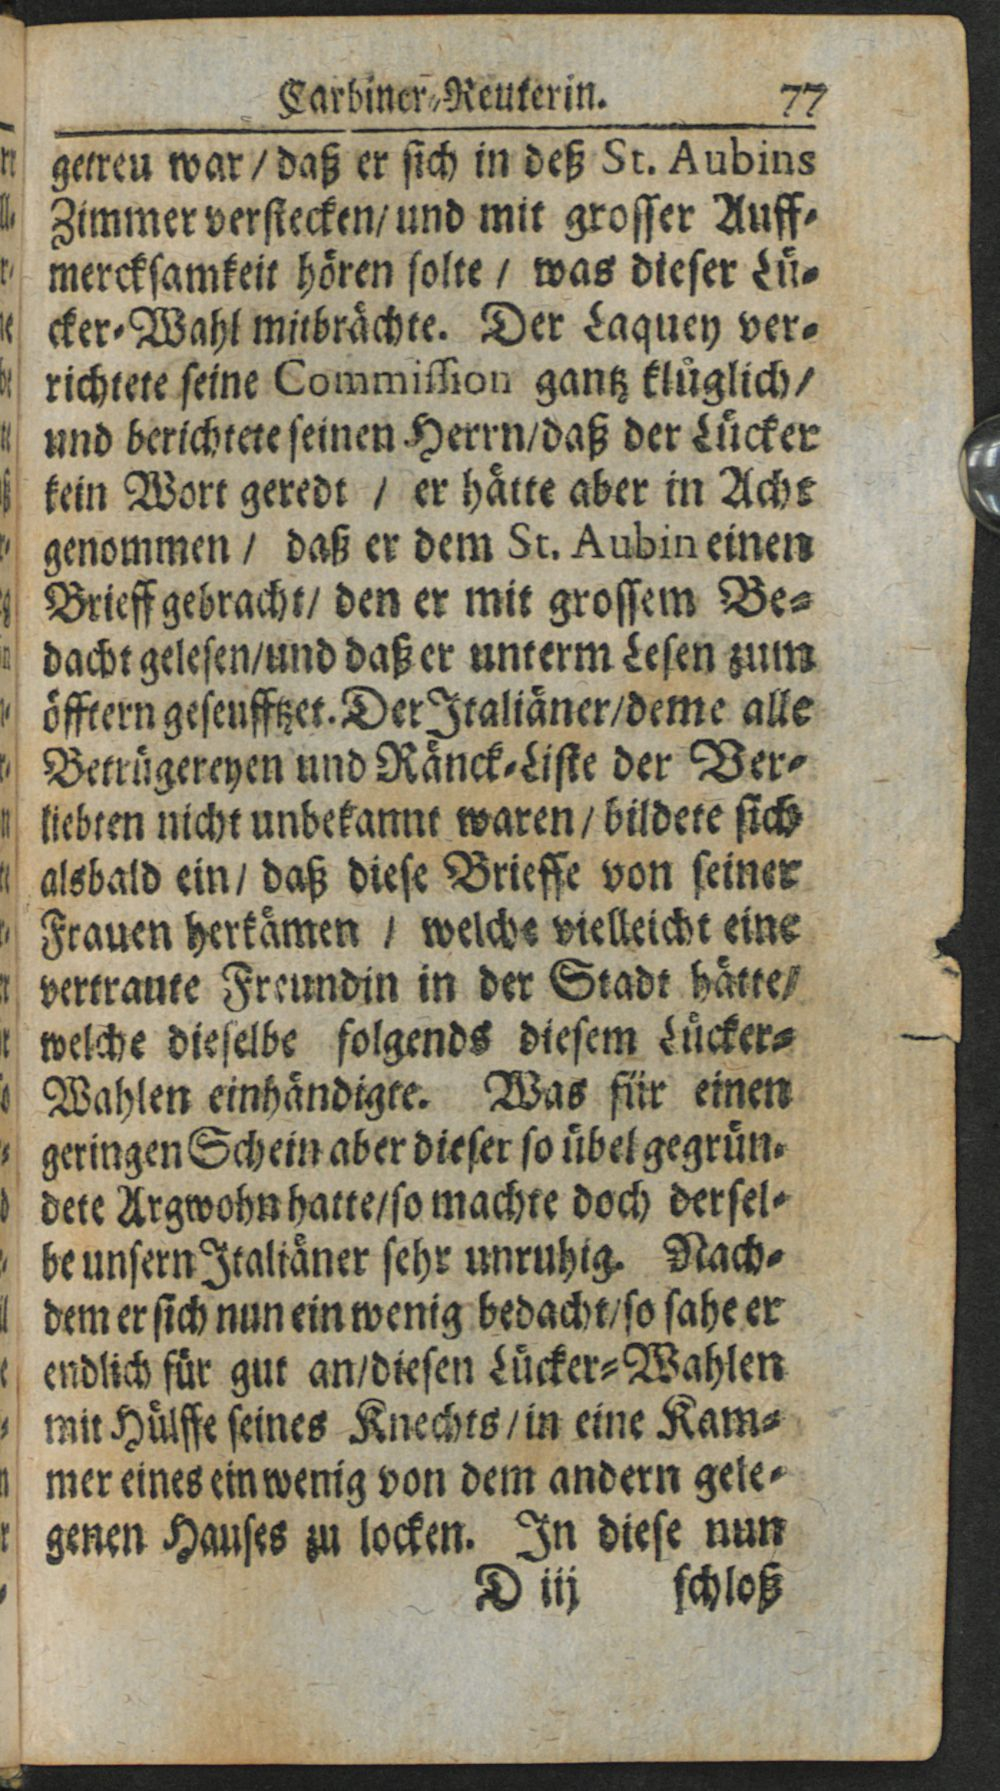 Carbiner-Reuterin. 77
getreu war / daß er sich in deß St. Aubins
Zimmer verstecken/ und mit grosser Auff-
mercksamkeit hören solte / was dieser Lü-
cker-Wahl mitbrächte. Der Laquey ver-
richtete seine Commission gantz klüglich/
und berichtete seinen Herrn/daß der Lücker
kein Wort geredt / er hätte aber in Acht
genommen / daß er dem St. Aubin einen
Brieff gebracht/ den er mit grossem Be-
dacht gelesen/und daß er unterm Lesen zum
öfftern geseufftzet. Der Italiäner/deme alle
Betrügereyen und Ränck-Liste der Ver-
liebten nicht unbekannt waren / bildete sich
alsbald ein/ daß diese Brieffe von seiner
Frauen herkämen / welche vielleicht eine
vertraute Freundin in der Stadt hätte/
welche dieselbe folgends diesem Lücker-
Wahlen einhändigte. Was für einen
geringen Schein aber dieser so übel gegrün-
dete Argwohn hatte/so machte doch dersel-
be unsern Italiäner sehr unruhig. Nach-
dem er sich nun ein wenig bedacht/so sahe er
endlich für gut an/diesen Lücker-Wahlen
mit Hülffe seines Knechts / in eine Kam-
mer eines ein wenig von dem andern gele-
genen Hauses zu locken. In diese nun
D iij schloß